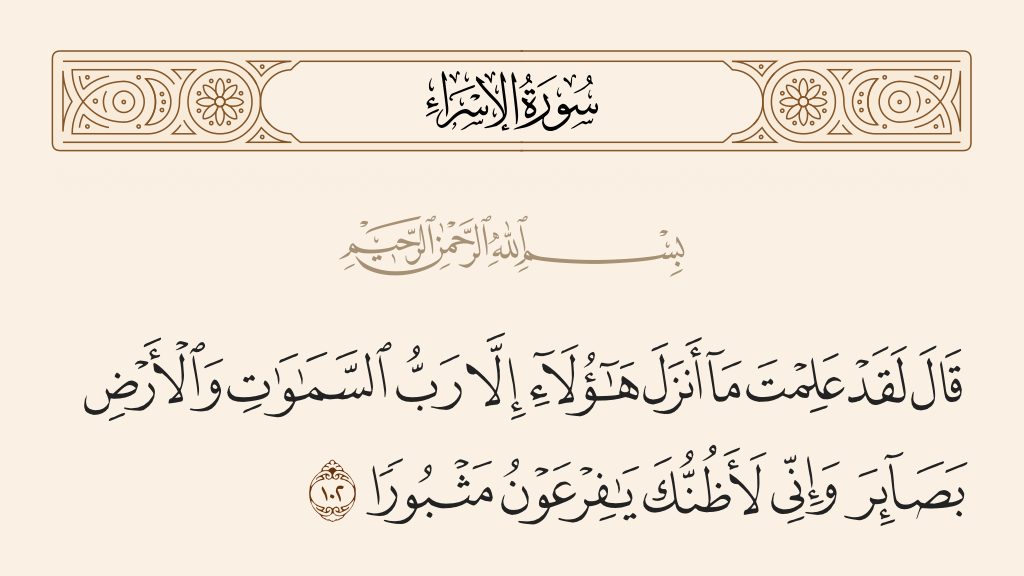 سُورَةُ الإِسْرَاءِ
بِسْمِ ٱللَّهِ ٱلرَّحْمَٰنِ ٱلرَّحِيمِ
قَالَ لَقَدْ عَلِمْتَ مَآ أَنزَلَ هَٰٓؤُلَآءِ إِلَّا رَبُّ ٱلسَّمَٰوَٰتِ وَٱلْأَرْضِ
بَصَآئِرَ وَإِنِّى لَأَظُنُّكَ يَٰفِرْعَوْنُ مَثْبُورًا ١٠٢